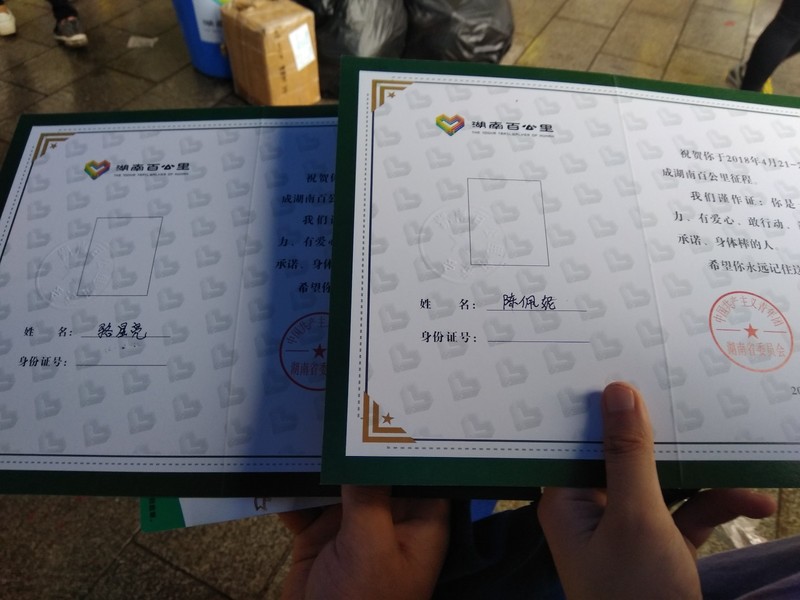 湖南百公里
祝
成湖南百公
我们
力、有爱心
承诺、身体
希望
姓 名： 骆星亮
身份证号：
湖南省委员会
湖南百公里
祝贺你于2018年4月21-
成湖南百公里征程
我们谨作证：你是
力、有爱心、敢行动、
承诺、身体棒的人
希望你永远记住这
姓 名： 陈佩妮
身份证号：
中国共产主义青年团
湖南省委员会
20